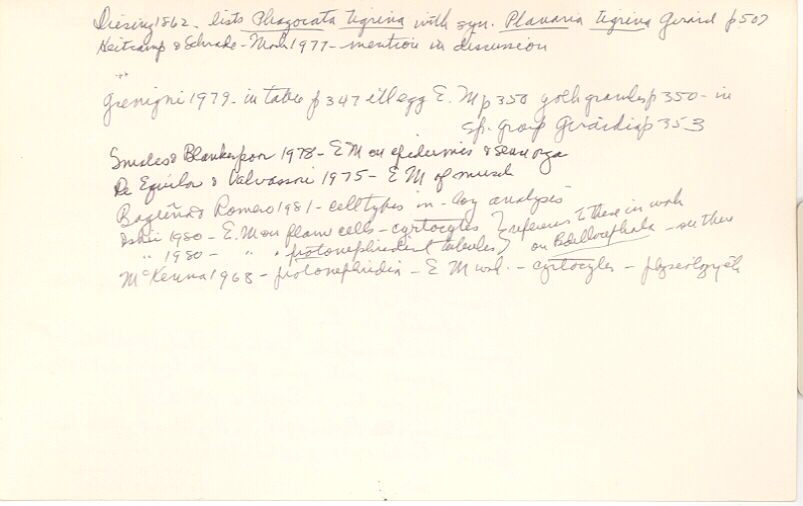 Diesing 1862. lists Phagocata tigrina with syn. Planaria tigrina Girard p 507
Heitkamp & Schrade- - 1977 - mention in discussion
Gremigni 1979 - in table p 347 ill egg E. M p 350 yolk granules p 350 - in
sp. group Girardia p 353
Smales & Blankespoor 1978 - E M on epidermis & sense orga
De Eguilor & Valvassori 1975 - E M of muscle
Baguñá & Romero 1981 - cell types in - analysis
Ishii 1980 - E. M on flame cells - cyrtocytes } reference to these in work
" 1980 - " " protonephridial tubules } on Bdellocephala - see there
McKenna 1968 - protonephridia - E M wk. - cyrtocytes - physiology